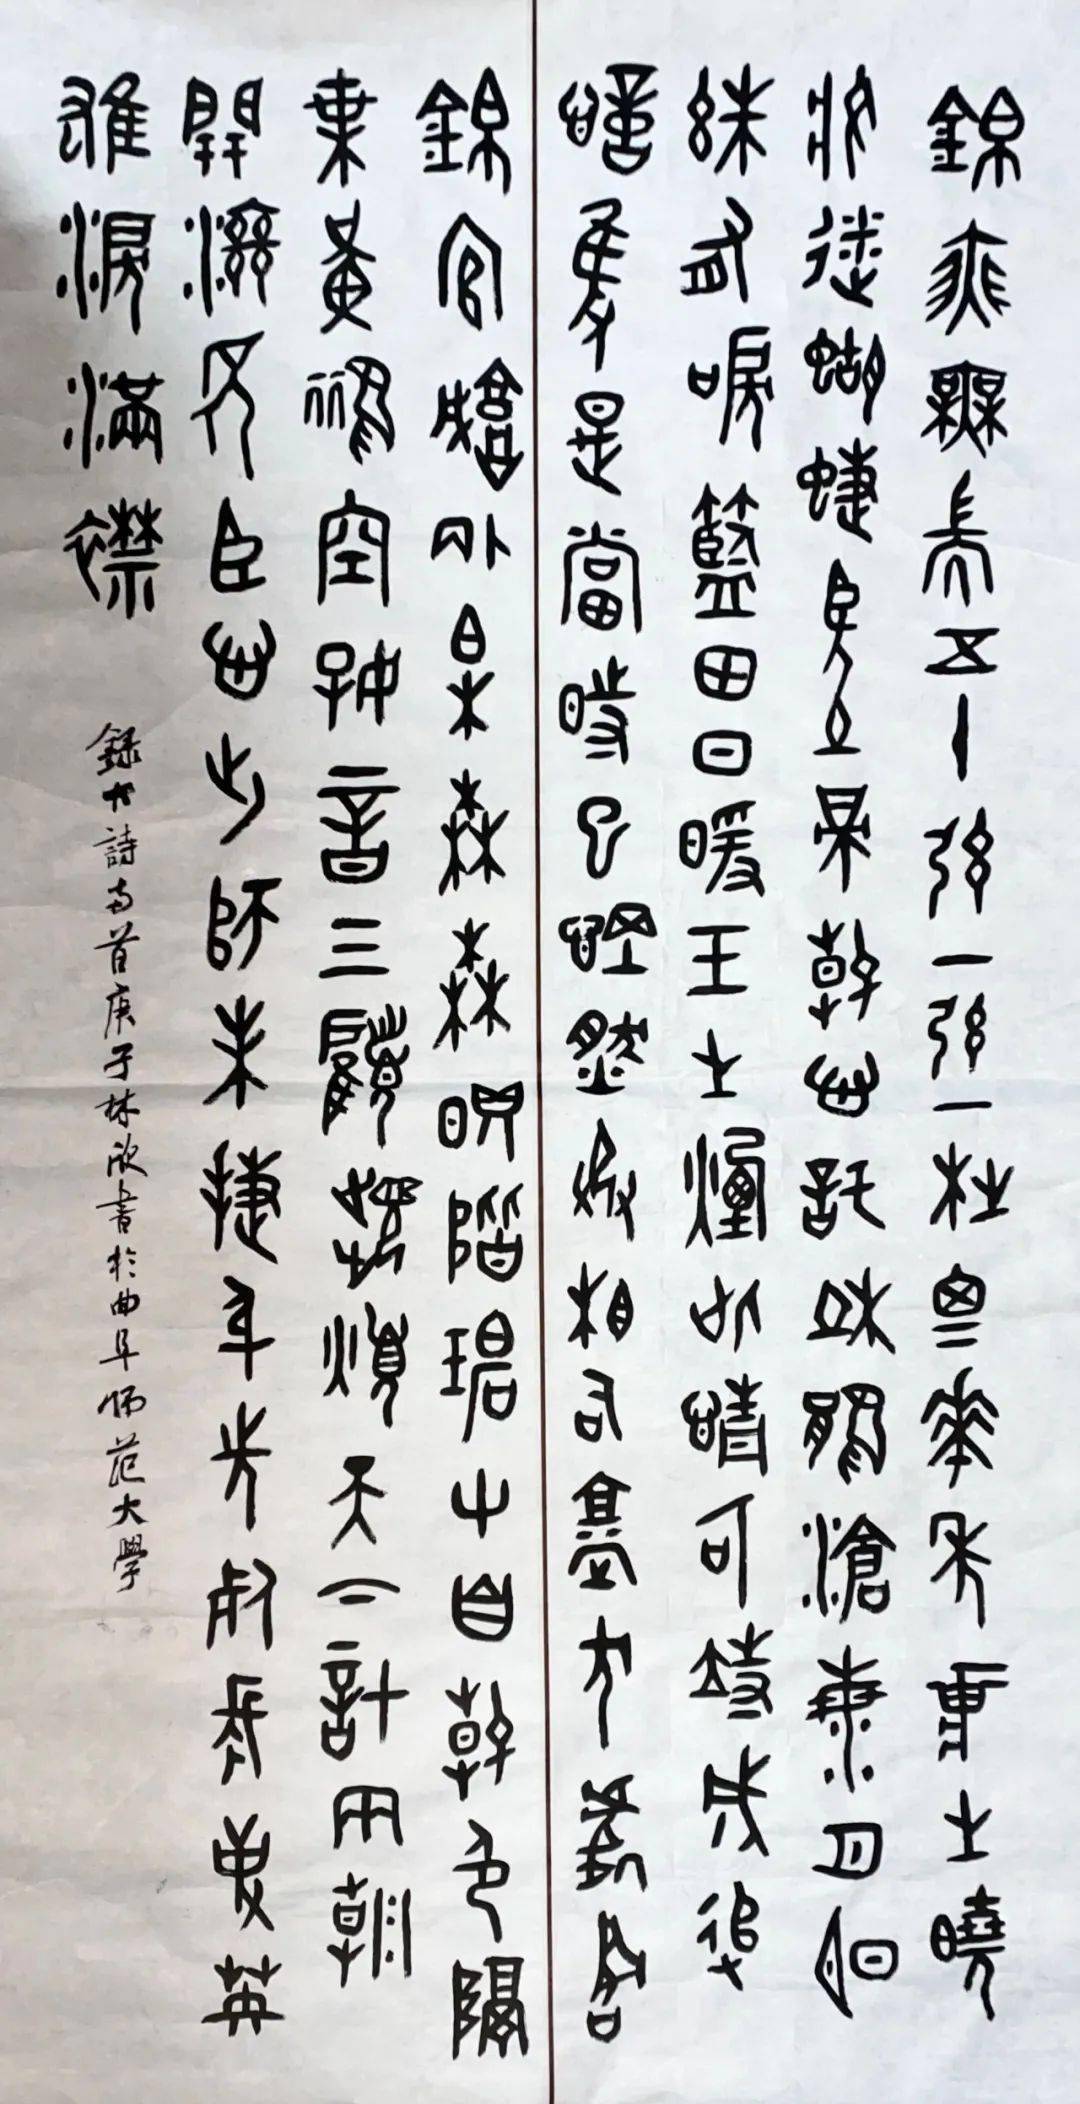 錦瑟無耑五十弦一弦一柱思華年莊生曉
夢迷蝴蝶望帝春心託杜鵑滄海月明
珠有淚藍田日暖玉生煙此情可待成追
憶隻是當時已惘然丞相祠堂何處尋
錦官城外柏森森映階碧艸自春色隔
葉黃鸝空好音三顧頻煩天下計兩朝
開濟老臣心出師未捷身先死長使英
雄淚滿襟
錄古詩兩首庚子林欣書於曲阜師范大學